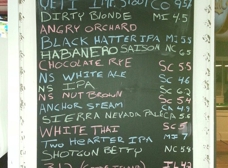 YETI IMP. STOUT CO 9.5
DIRTY BLONDE MI 4.5
ANGRY ORCHARD
BLACK HATTER IPA MI 5.5
HABANERO SAISON NC 6.5
CHOCOLATE RYE SC 55
NS WHITE ALE SC 46
NS IPA SC 62
NS NUT BROWN SC 54
ANCHOR STEAM CA 4.9
SIERRA NEVADA PALE CA 56
WHITE THAI SC 5
TWO HEARTED IPA MI 7
SHOTGUN BETTY NC 58
IL 42